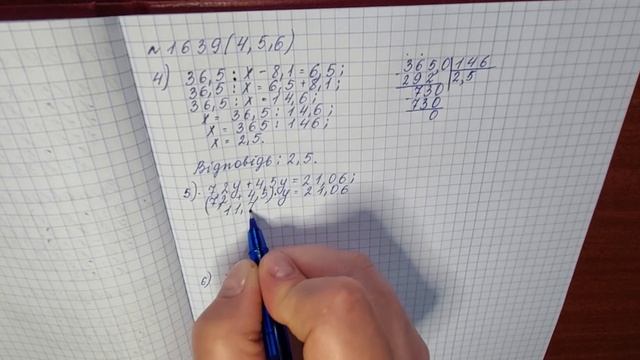 №1639(4,5,6)
4) 36,5 : x - 8,1 = 6,5;
36,5 : x = 6,5 + 8,1;
36,5 : x = 14,6;
x = 36,5 : 14,6;
x = 365 : 146;
x = 2,5.
Відповідь: 2,5.
365,0 146
- 292 2,5
730
- 730
0
5) 7,2y + 4,5y = 21,06;
(7,2 + 4,5)·y = 21,06
11,
6)